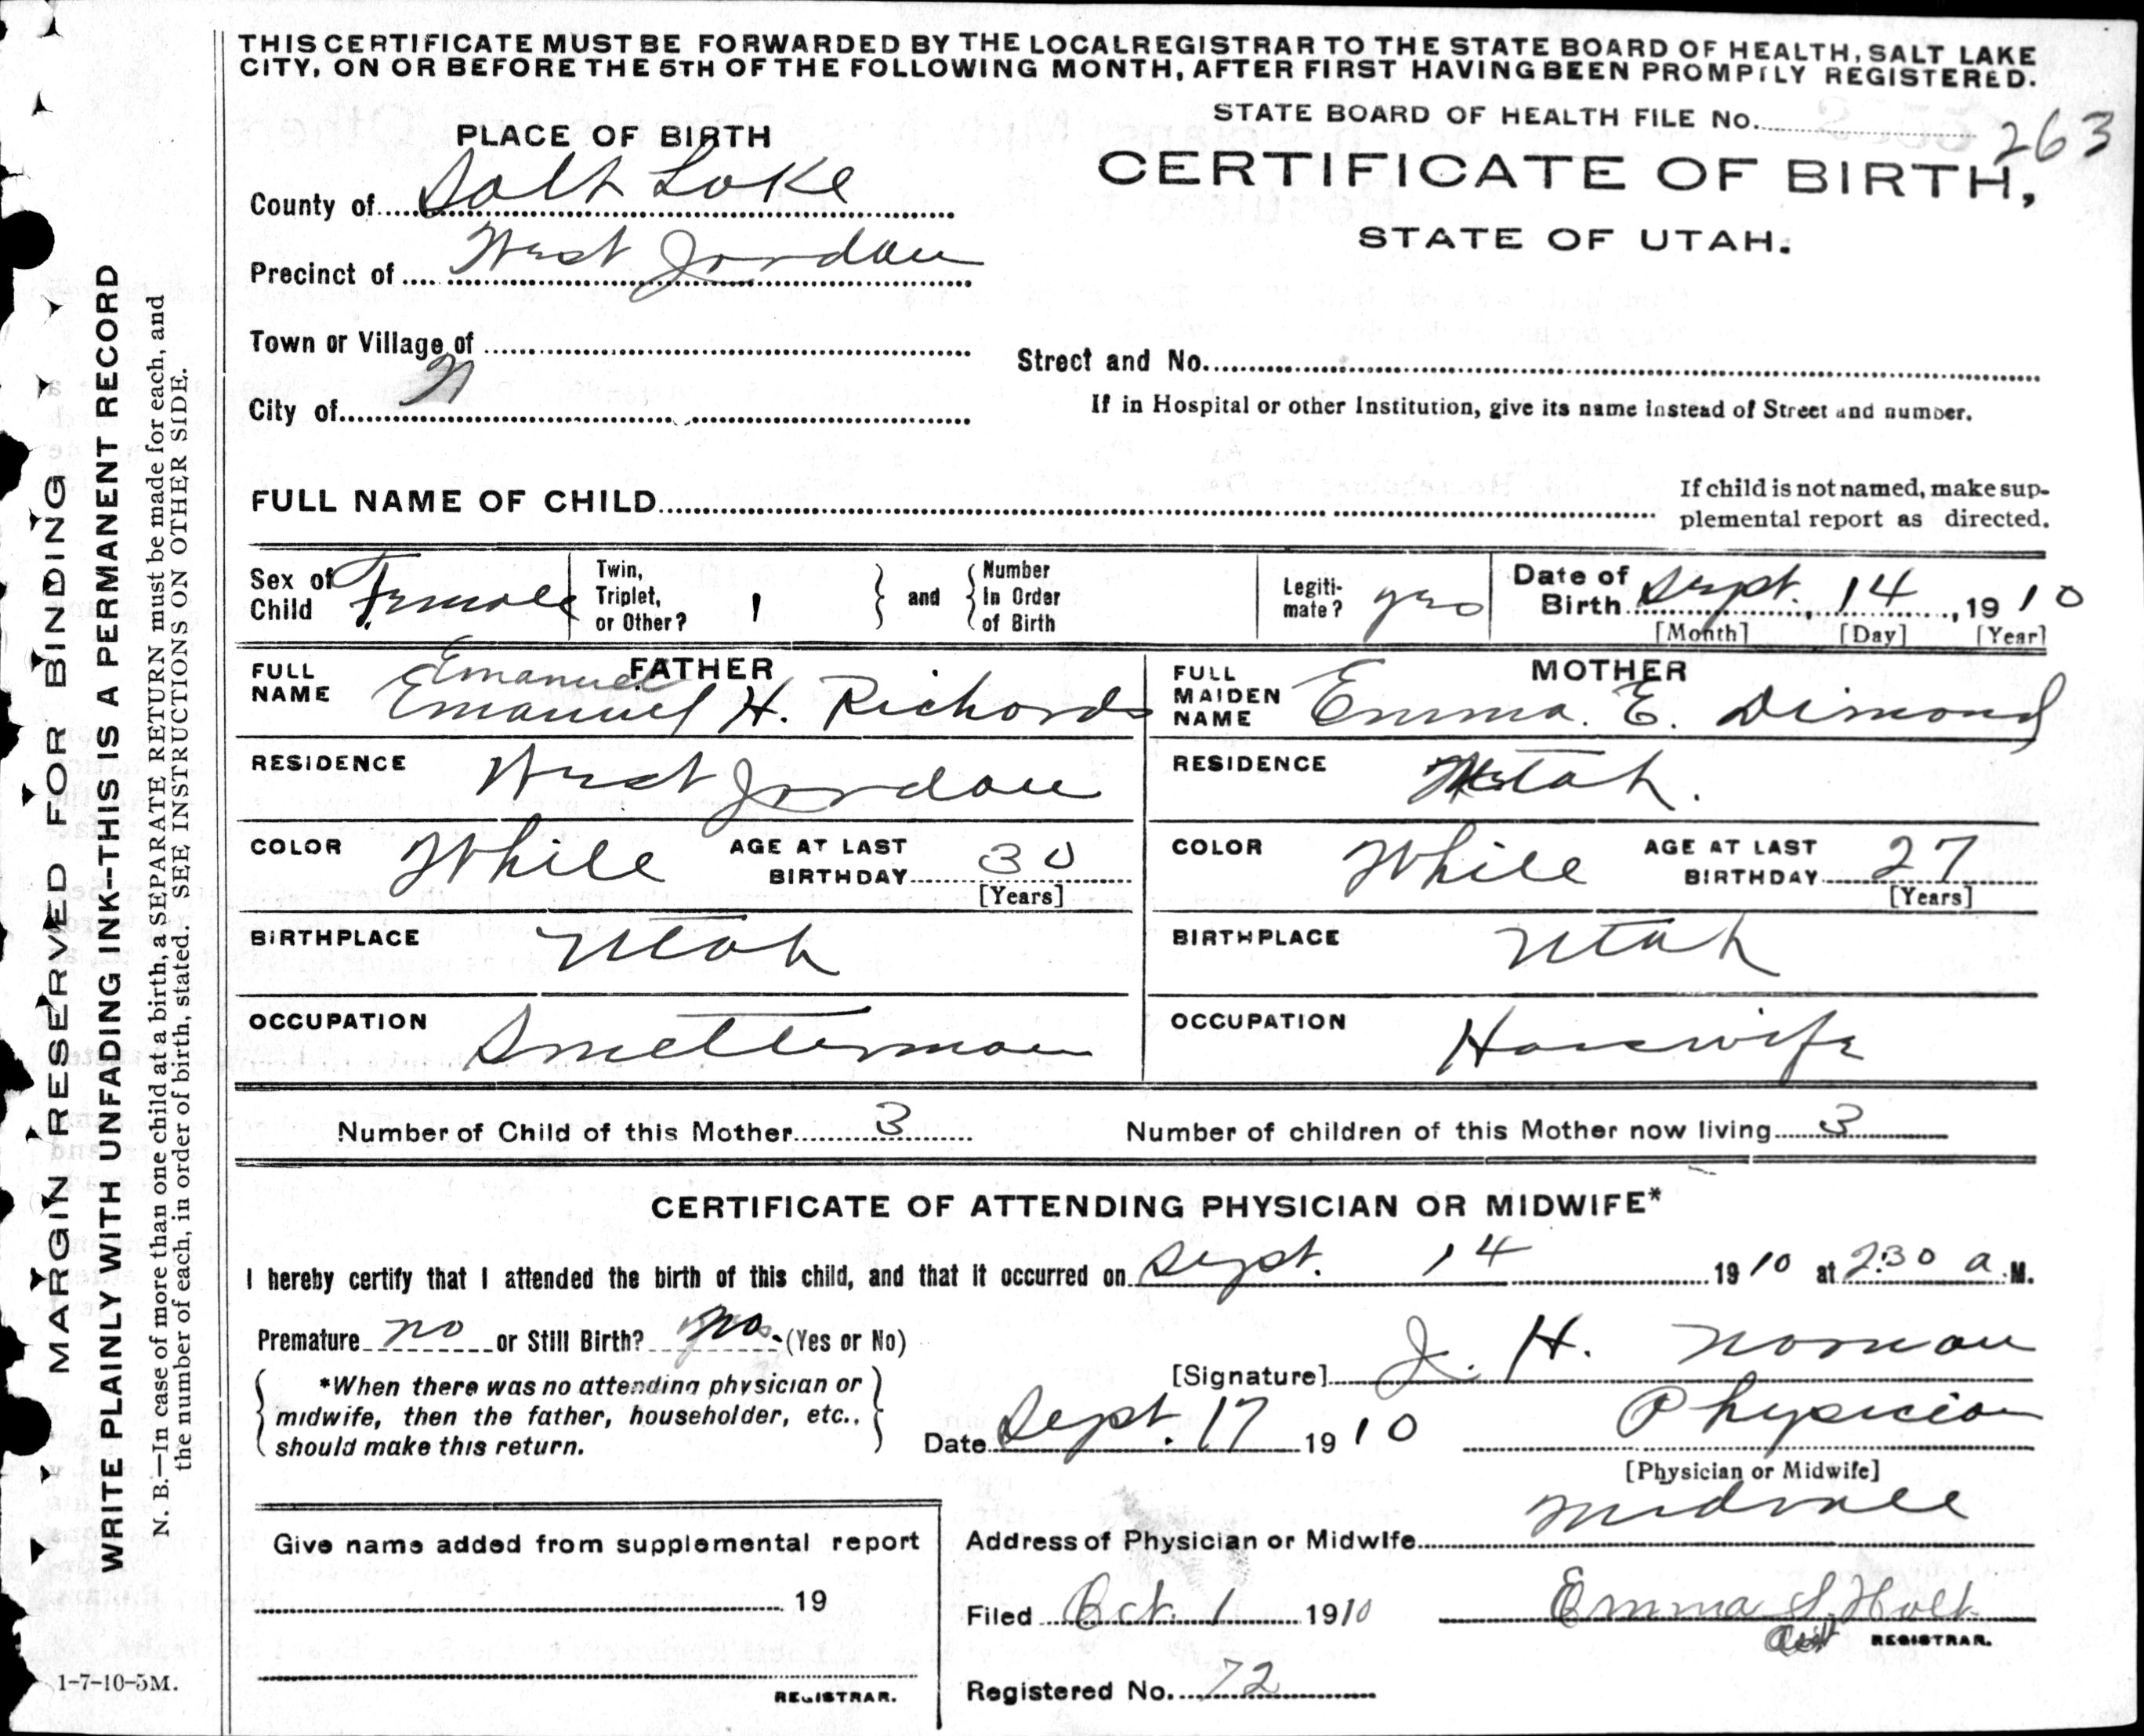 THIS CERTIFICATE MUST BE FORWARDED BY THE LOCAL REGISTRAR TO THE STATE BOARD OF HEALTH, SALT LAKE
CITY, ON OR BEFORE THE 5TH OF THE FOLLOWING MONTH, AFTER FIRST HAVING BEEN PROMPTLY REGISTERED.
STATE BOARD OF HEALTH FILE No. 263
PLACE OF BIRTH
CERTIFICATE OF BIRTH,
STATE OF UTAH.
County of Salt Lake
Precinct of West Jordan
Town or Village of
City of
Street and No.
If in Hospital or other Institution, give its name instead of Street and number.
FULL NAME OF CHILD
If child is not named, make sup-
plemental report as directed.
Sex of Child Female
Twin, Triplet, or Other? 1 and Number In Order of Birth
Legiti-mate? yes
Date of Birth Sept. 14, 1910
[Month] [Day] [Year]
FATHER
FULL NAME Emanuel
Emanuel H. Richards
MOTHER
FULL MAIDEN NAME Emma. E. Dimond
RESIDENCE West Jordan
RESIDENCE Utah.
COLOR White AGE AT LAST BIRTHDAY 30
[Years]
COLOR White AGE AT LAST BIRTHDAY 27
[Years]
BIRTHPLACE Utah
BIRTHPLACE Utah
OCCUPATION Smelterman
OCCUPATION Housewife
Number of Child of this Mother 3 Number of children of this Mother now living 3
CERTIFICATE OF ATTENDING PHYSICIAN OR MIDWIFE*
I hereby certify that I attended the birth of this child, and that it occurred on Sept. 14 1910 at 2:30 a M.
Premature no or Still Birth? no. (Yes or No)
*When there was no attending physician or
midwife, then the father, householder, etc.,
should make this return.
[Signature] J. H. Norman
Date Sept. 17 1910 Physician
[Physician or Midwife]
Give name added from supplemental report
19
REGISTRAR.
Address of Physician or Midwife Midvale
Filed Oct. 1 1910 Emma S. Holt
Asst REGISTRAR.
Registered No. 72
MARGIN RESERVED FOR BINDING
WRITE PLAINLY WITH UNFADING INK--THIS IS A PERMANENT RECORD
N. B.—In case of more than one child at a birth, a SEPARATE RETURN must be made for each, and
the number of each, in order of birth, stated. SEE INSTRUCTIONS ON OTHER SIDE.
1-7-10-5M.